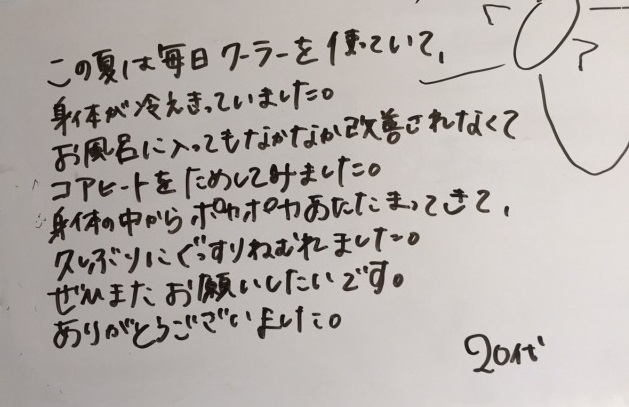 この夏は毎日クーラーを使っていて、
身体が冷えきっていました。
お風呂に入ってもなかなか改善されなくて
コアヒートをためしてみました。
身体の中からポカポカあたたまってきて、
久しぶりにぐっすりねむれました。
ぜひまたお願いしたいです。
ありがとうございました。
20代